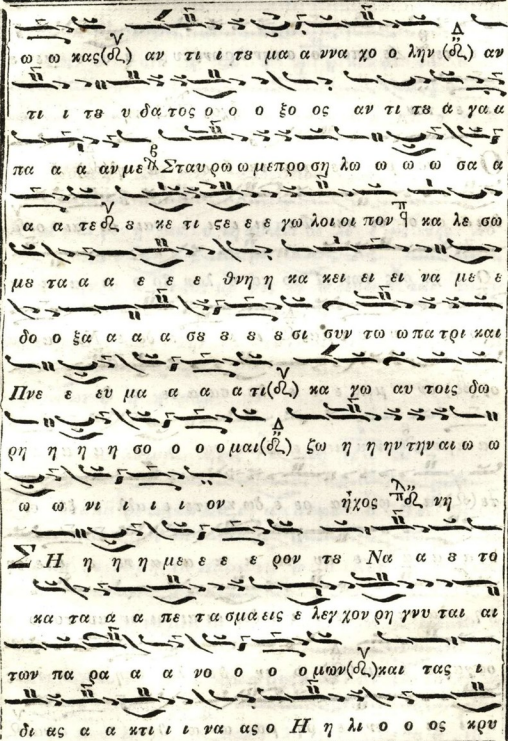 ω ω κας (ᾦ) αν τι ι τȣ μα α ννα χο ο λην (ᾦ) αν
τι ι τȣ υ δα τος ο ο ο ξο ος αν τι τȣ α γα α
πα α α αν με Σταυ ρω ω με προ ση λω ω ω ω σα α
α α τε ȣ κε τι ϛε ε ε γω λοι οι πον κα λε σω
μȣ τα α α ε ε ε θνη η κα κει ει ει να με ε
δο ο ξα α α α σȣ ȣ ȣ ȣ σι συν τω ω πα τρι και
Πνε ε ευ μα α α α τι κα γω αυ τοις δω
ρη η η η σο ο ο ο μαι ζω η η ην την αι ω ω
ω ω νι ι ι ι ον ἦχος νη
Σ Η η η η με ε ε ε ρον τȣ Να α ȣ το
κα τα α α πε τα σμα εις ε λεγ χον ρη γνυ ται αι
των πα ρα α α νο ο ο ο μων και τας ι
δι ας α α κτι ι ι να ας ο Η η λι ο ο ος κρυ